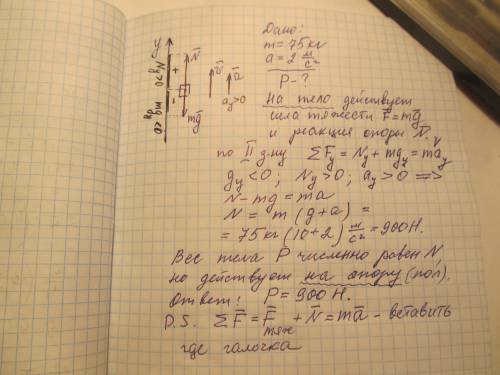 y
N̄
+
Ny>0
-
mgy<0
mḡ
ā
ay>0
Дано:
m = 75 кг
a = 2 м/с²
P - ?
На тело действует
сила тяжести F̄=mḡ
и реакция опоры N̄. V
по II з-ну ΣFy = Ny + mgy = may
gy < 0; Ny > 0; ay > 0 =>
N - mg = ma
N = m (g+a) =
= 75 кг (10+2) м/с² = 900 Н.
Вес тела P численно равен N,
но действует на опору (пол).
Ответ: P = 900 Н.
P.S. ΣF̄ = F̄тяж + N̄ = mā - вставить
где галочка